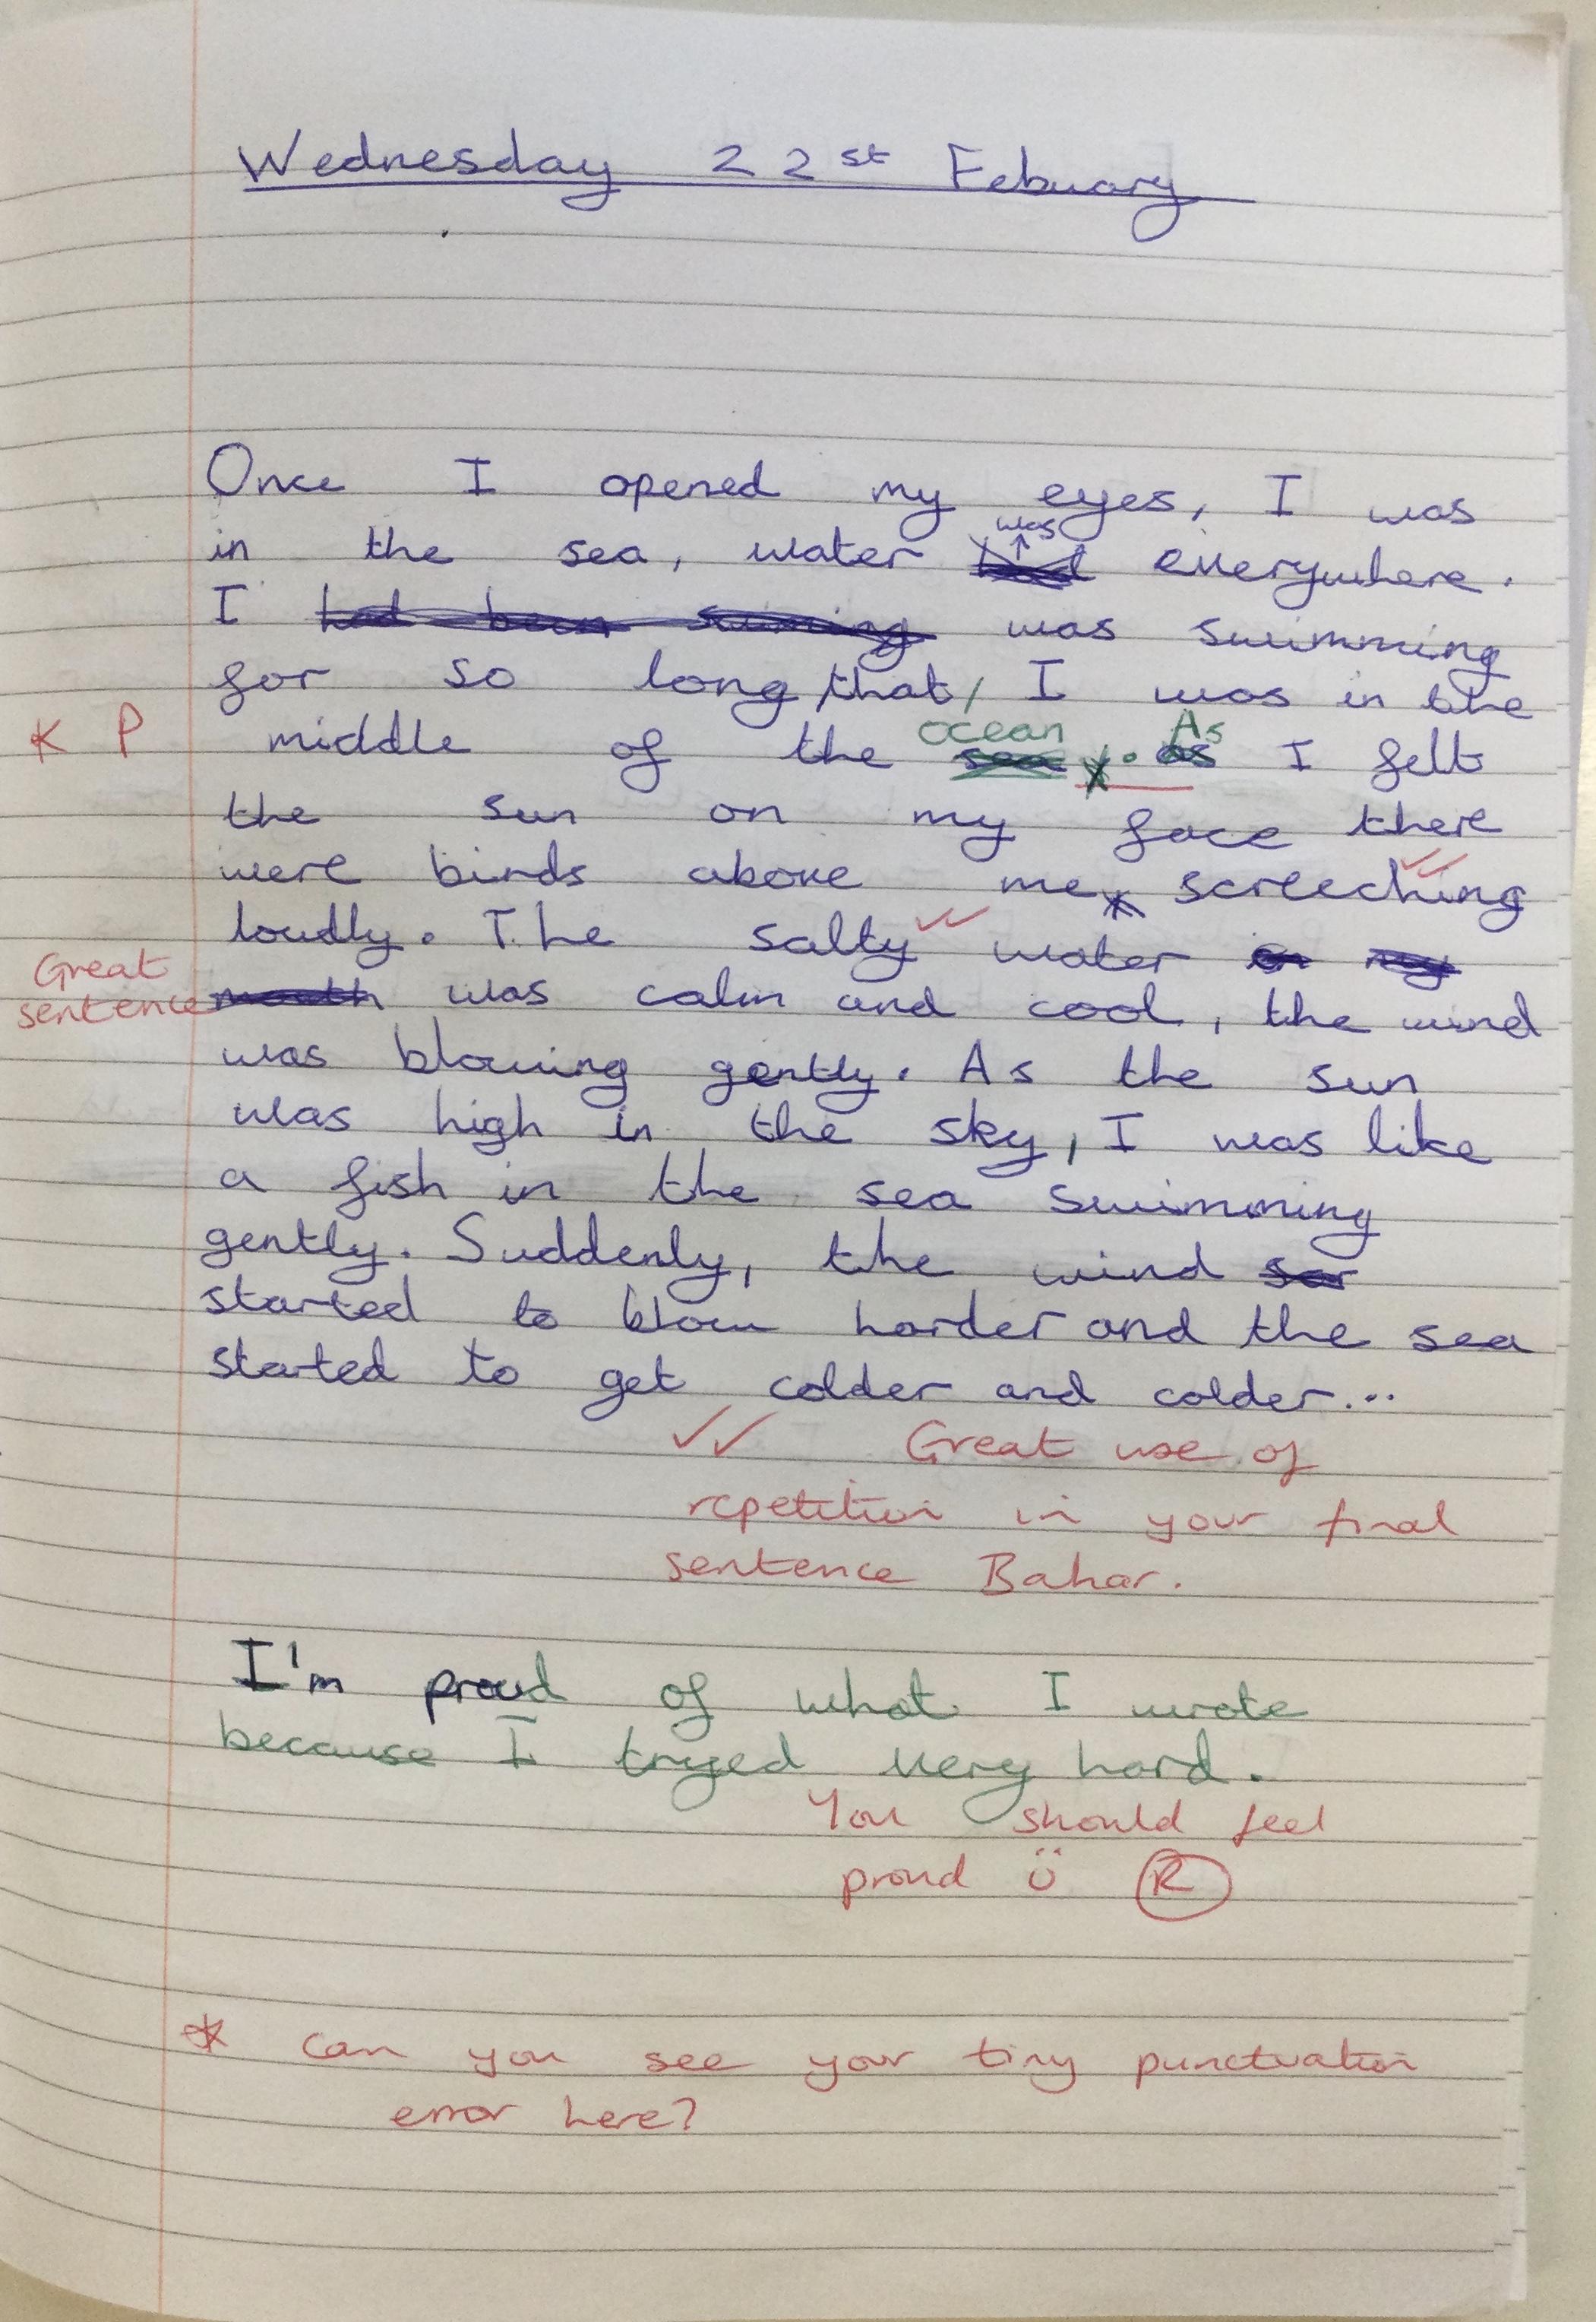 Wednesday 22st Febuary
Once I opened my eyes, I was
was
in the sea, water everywhere.
I had been swiming was swimming
for so long, that, I was in the
ocean As
* P middle of the sea . as I felt
the sun on my face there
were birds above me screeching
loudly. The salty water on my
Great
sentence mouth was calm and cool, the wind
was blowing gently. As the sun
was high in the sky, I was like
a fish in the sea swimming
gently. Suddenly, the wind
started to blow harder and the sea
started to get colder and colder...
Great use of
repetition in your final
sentence Bahar.
I'm proud of what I wrote
because I tryed very hard.
You should feel
proud R
* can you see your tiny punctuation
error here?